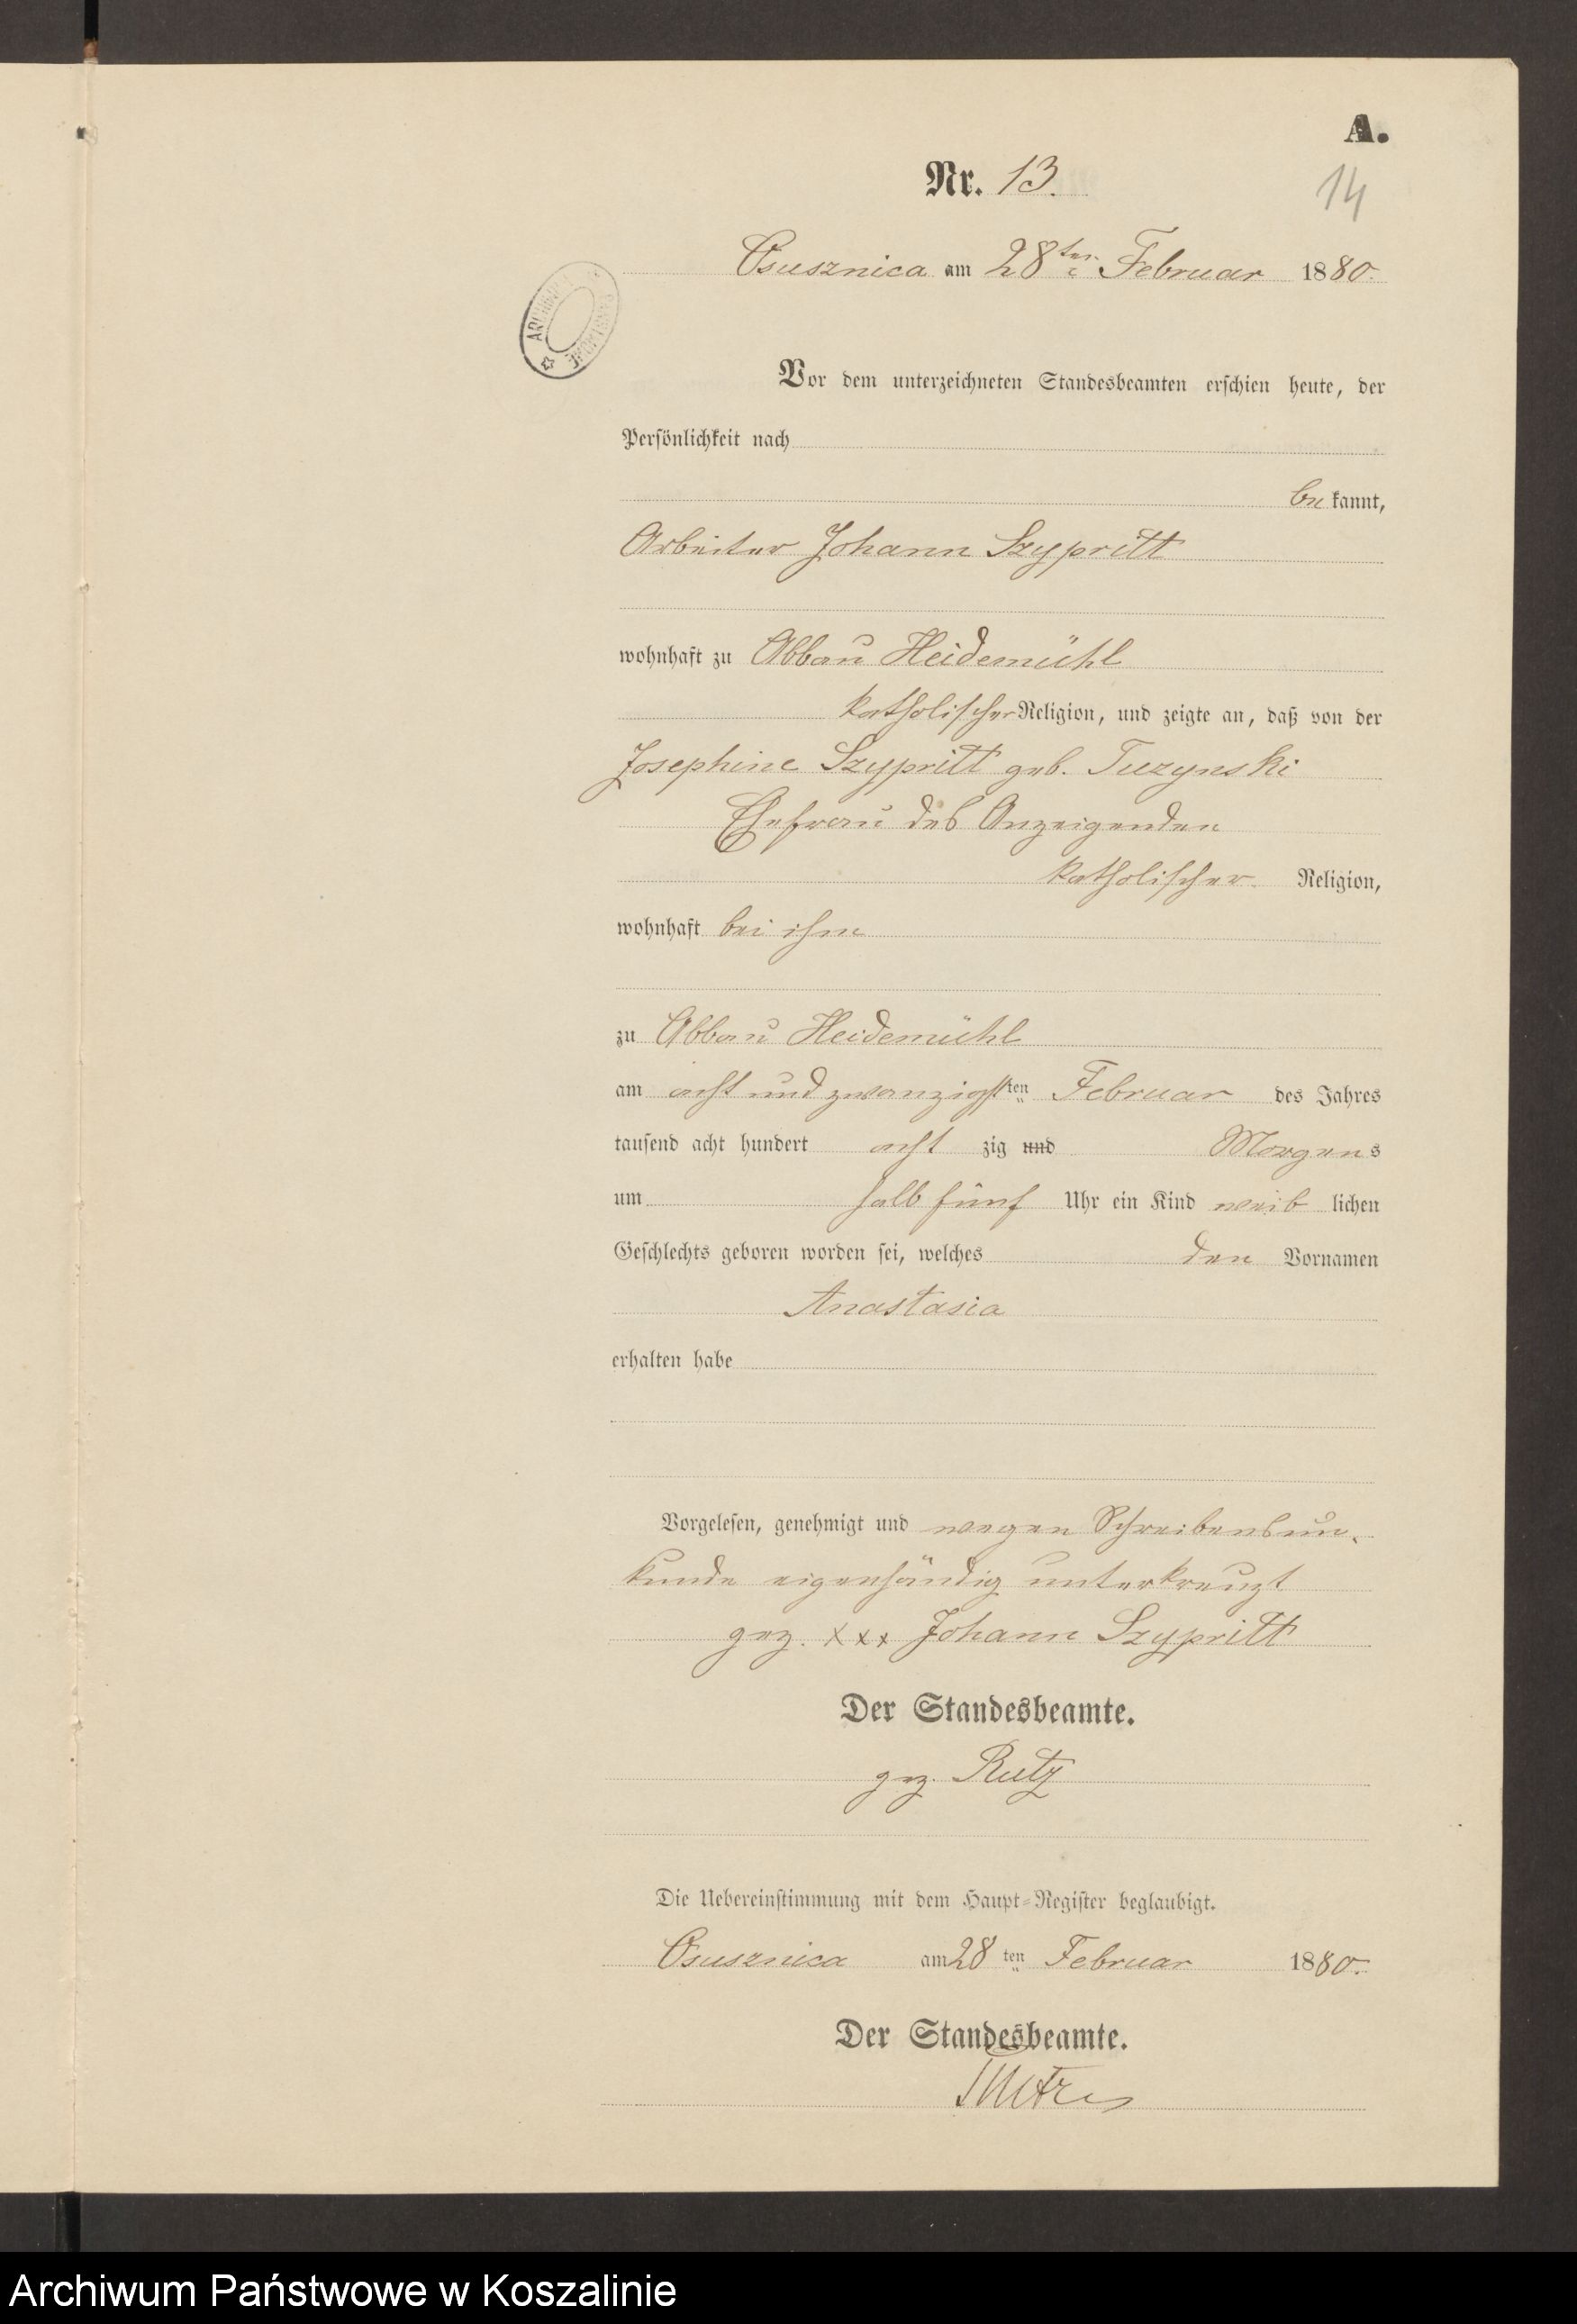 A.
Nr. 13.
14
Osusznica am 28ten Februar 1880.
Vor dem unterzeichneten Standesbeamten erschien heute, der
Persönlichkeit nach
bekannt,
Arbeiter Johann Szypritt
wohnhaft zu Abbau Heidemühl
katholischer Religion, und zeigte an, daß von der
Josephine Szypritt geb. Tuzynski
Ehefrau des Anzeigenden
katholischer Religion,
wohnhaft bei ihm
zu Abbau Heidemühl
am acht und zwanzigsten Februar des Jahres
tausend acht hundert acht zig und Morgens
um halb fünf Uhr ein Kind weib lichen
Geschlechts geboren worden sei, welches den Vornamen
Anastasia
erhalten habe
Vorgelesen, genehmigt und wegen Schreibensun-
kunde eigenhändig unterkreuzt
gez. xxx Johann Szypritt
Der Standesbeamte.
gez. Rutz
Die Uebereinstimmung mit dem Haupt-Register beglaubigt.
Osusznica am 28ten Februar 1880.
Der Standesbeamte.
Archiwum Państwowe w Koszalinie